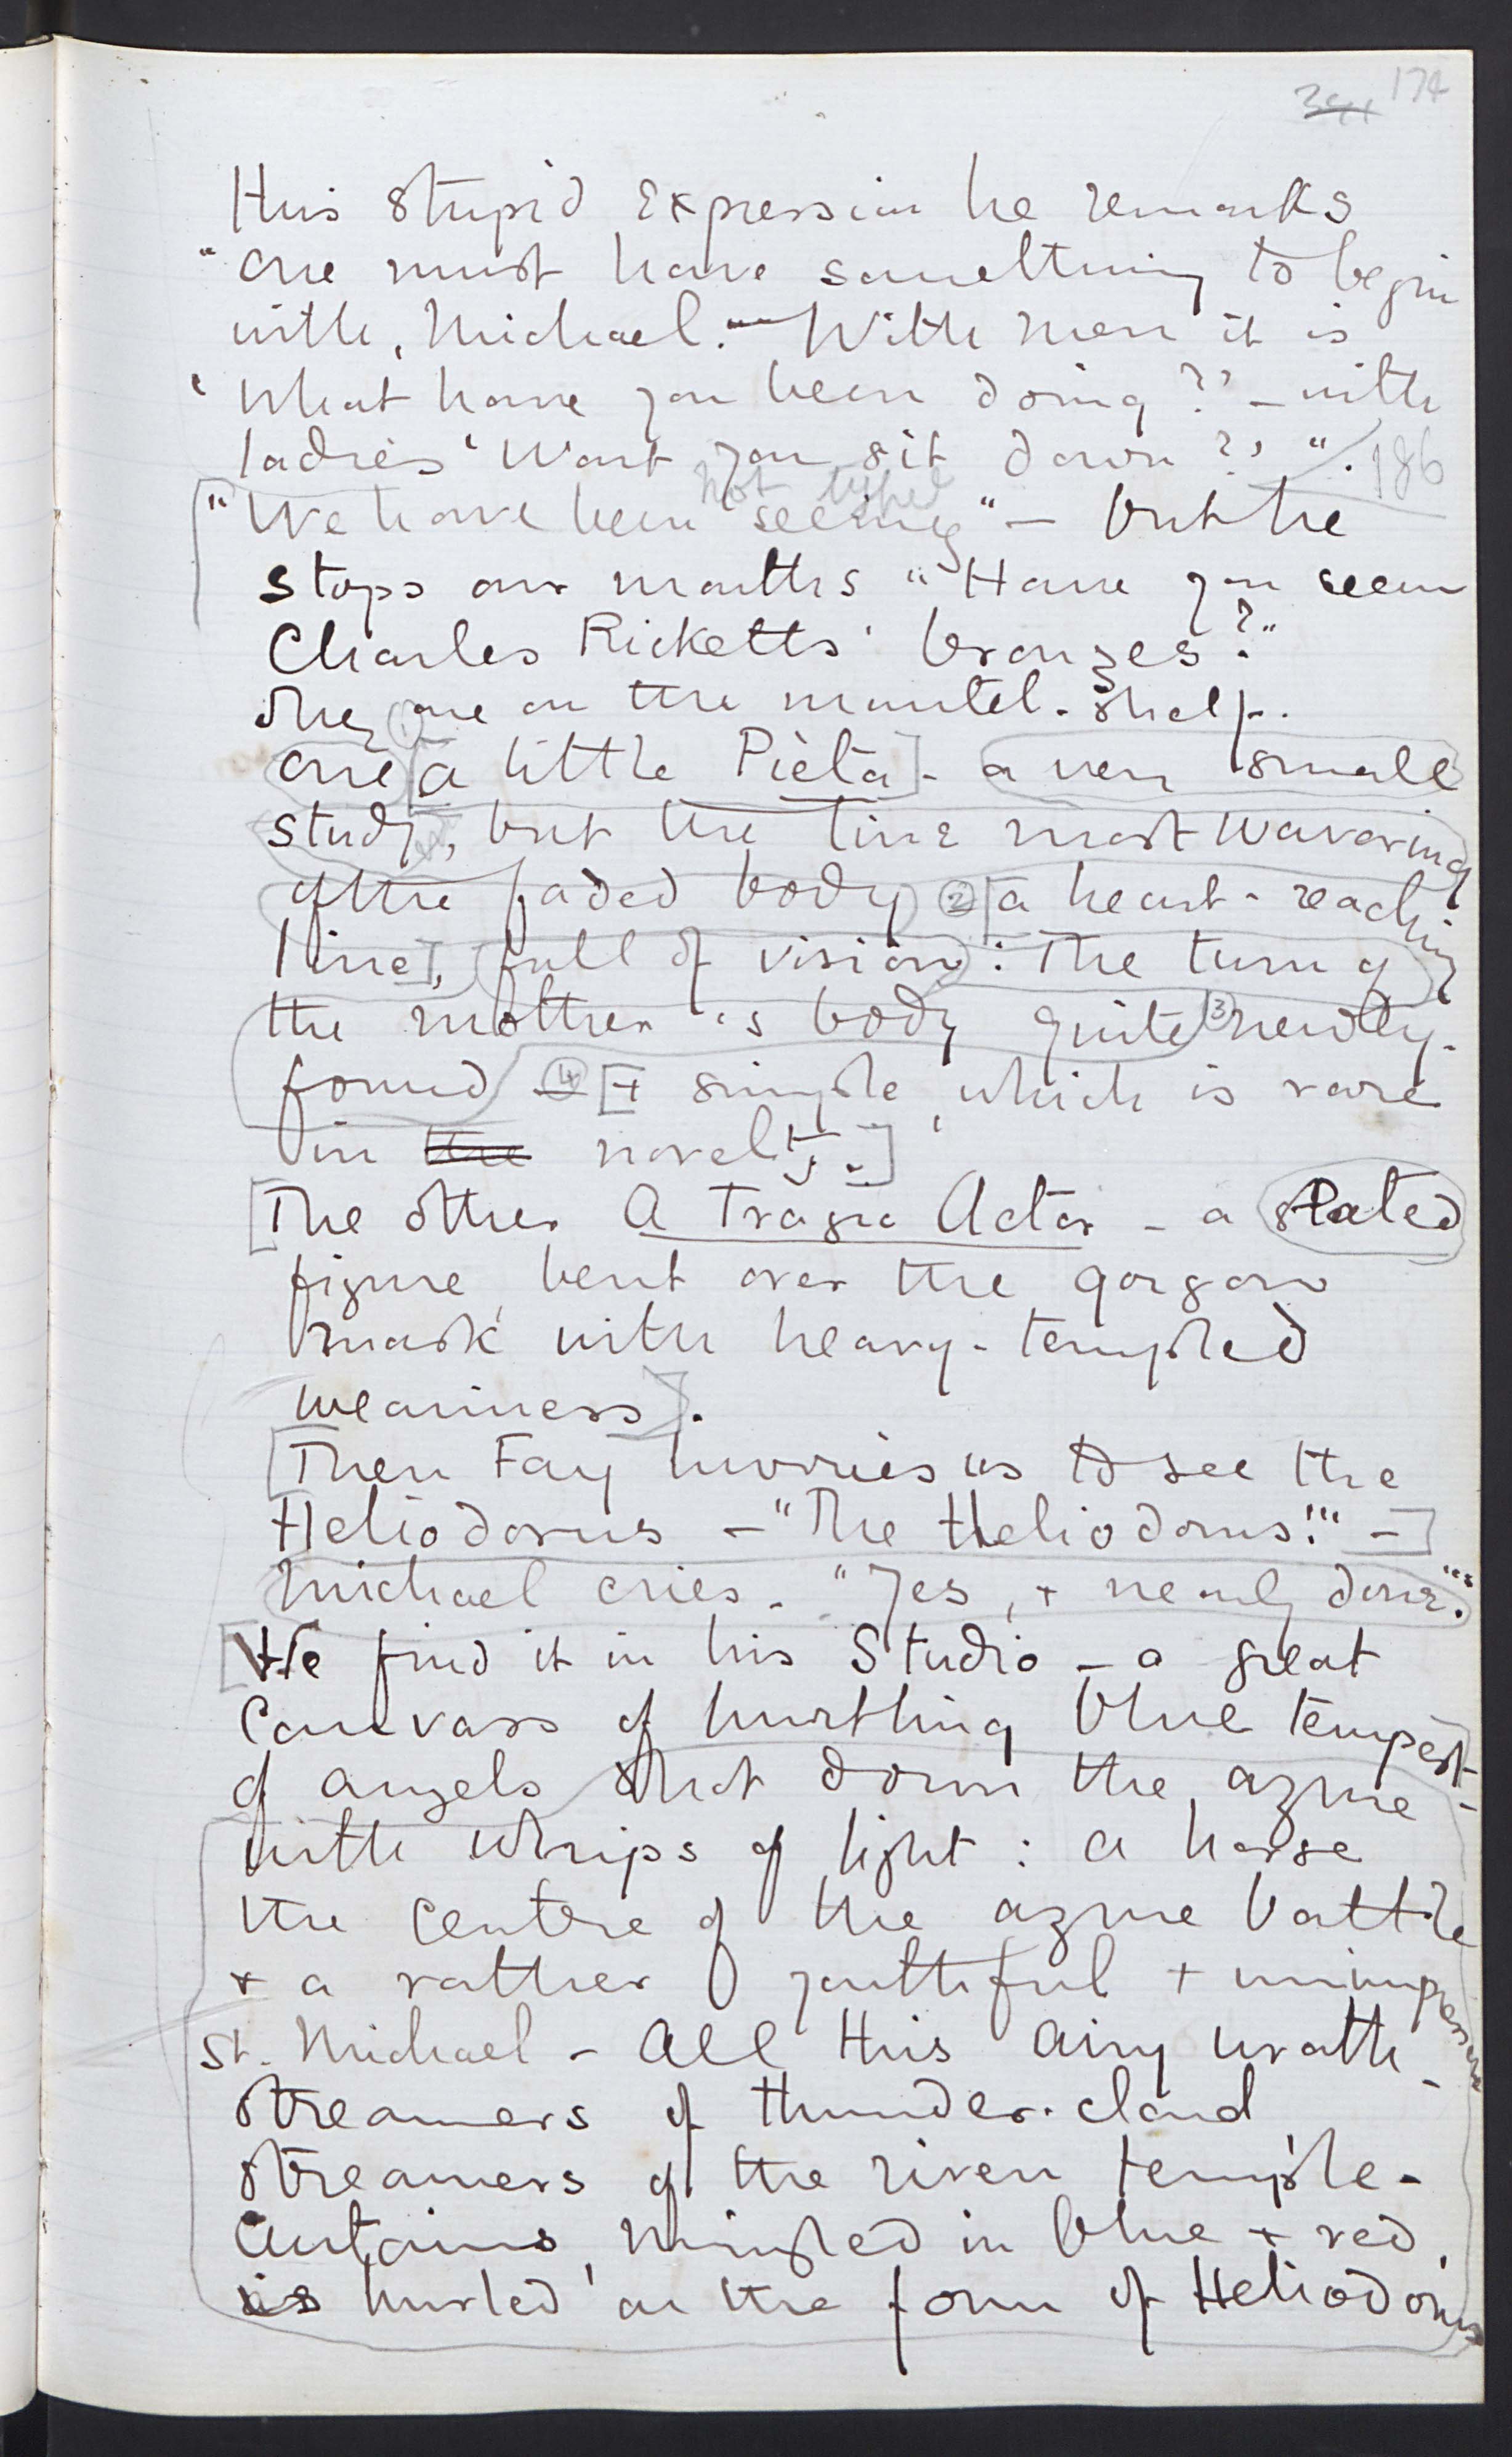 174
this stupid expression he remarks
"One must have something to begin
with, Michael. — With men it is
'What have you been doing?' — with
ladies 'Wont you sit down?' ".
186
not typed
"We have been seeing" — but he
stops our mouths "Have you seen
Charles Ricketts' bronzes?"
They are on the mantel-shelf.
(1)
One [a little Pietà] - a very small
study, but the line most wavering
of the faded body (2) [a heart-reaching
line], full of vision: The turn of
the mother's body quite (3) newly-
found (4) [+ simple, which is rare
in the novelty.]
[The other A Tragic Actor - a seated
figure, bent over the gorgon
mask with heavy-templed
weariness].
[Then Fay hurries us to see the
Heliodorus — "The Heliodorus!" -]
Michael cries. "Yes, + nearly done."
[We find it in his Studio - a great
canvass of hurtling blue tempest]-
of angels shot down the azure -
with whips of light: a horse
the centre of the azure battle
+ a rather youthful + unimpressive
St. Michael - All this airy wrath -
streamers of thunder-cloud,
streamers of the riven temple-
curtains, mingled in blue + red,
is hurled on the form of Heliodorus